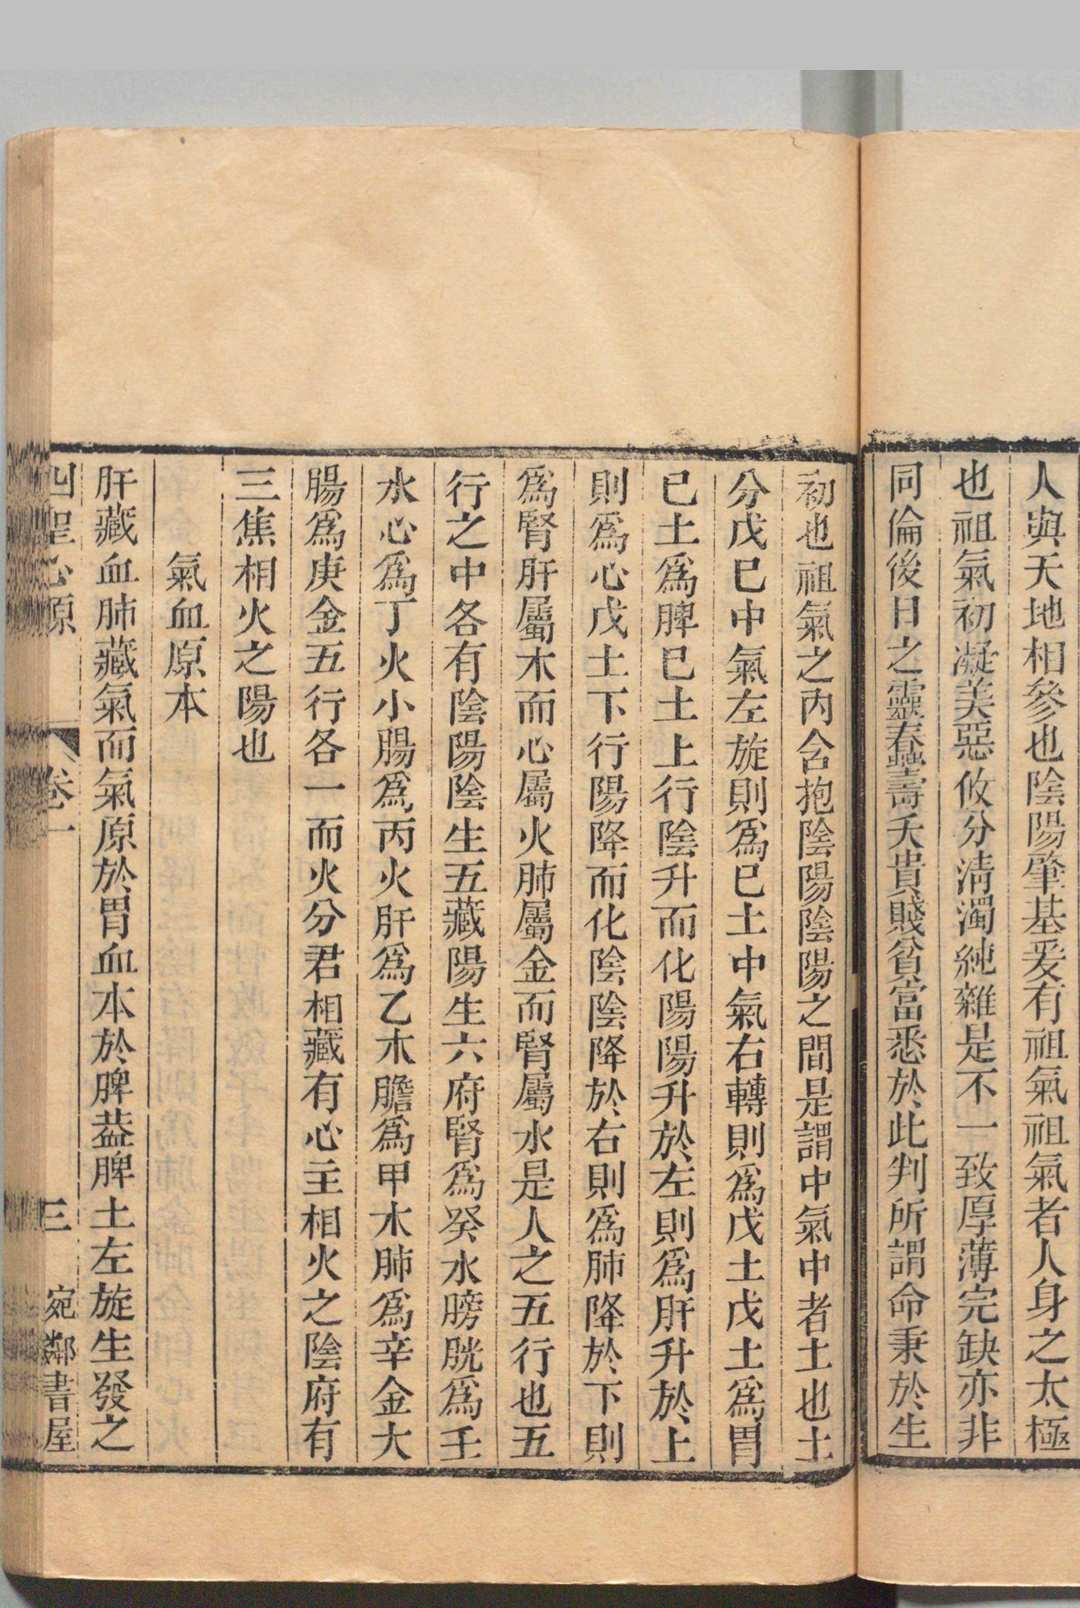 人與天地相參也陰陽肇基爰有祖氣祖氣者人身之太極
也祖氣初凝美惡攸分清濁純雜是不一致厚薄完缺亦非
同倫後日之靈蠢壽夭貴賤貧富悉於此判所謂命秉於生
初也祖氣之內含抱陰陽陰陽之間是謂中氣中者土也土
分戊己中氣左旋則爲己土中氣右轉則爲戊土戊土爲胃
己土爲脾己土上行陰升而化陽陽升於左則爲肝升於上
則爲心戊土下行陽降而化陰陰降於右則爲肺降於下則
爲腎肝屬木而心屬火肺屬金而腎屬水是人之五行也五
行之中各有陰陽陰生五藏陽生六府腎爲癸水膀胱爲壬
水心爲丁火小腸爲丙火肝爲乙木膽爲甲木肺爲辛金大
腸爲庚金五行各一而火分君相藏有心主相火之陰府有
三焦相火之陽也
氣血原本
肝藏血肺藏氣而氣原於胃血本於脾蓋脾土左旋生發之
四聖心原 卷一 三 宛鄰書屋